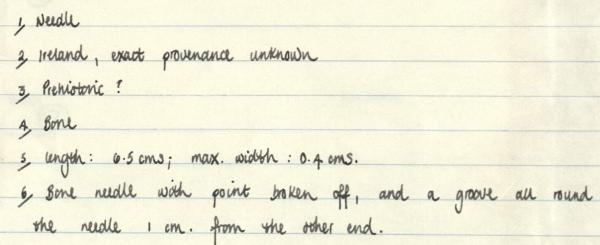 1, Needle
2, Ireland, exact provenance unknown
3, Prehistoric ?
4, Bone
5, length: 6.5 cms; max. width: 0.4 cms.
6, Bone needle with point broken off, and a groove all round
the needle 1 cm. from the other end.